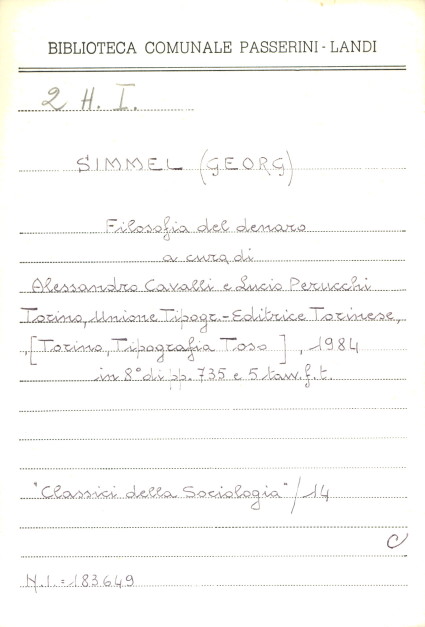 BIBLIOTECA COMUNALE PASSERINI - LANDI
2 H. I.
SIMMEL (GEORG)
Filosofia del denaro
a cura di
Alessandro Cavalli e Lucio Perucchi
Torino, Unione Tipogr.-Editrice Torinese,
[Torino, Tipografia Toso], 1984
in 8° di pp. 735 e 5 tavv. f. t.
"Classici della Sociologia" / 14
C
N.I. = 183649